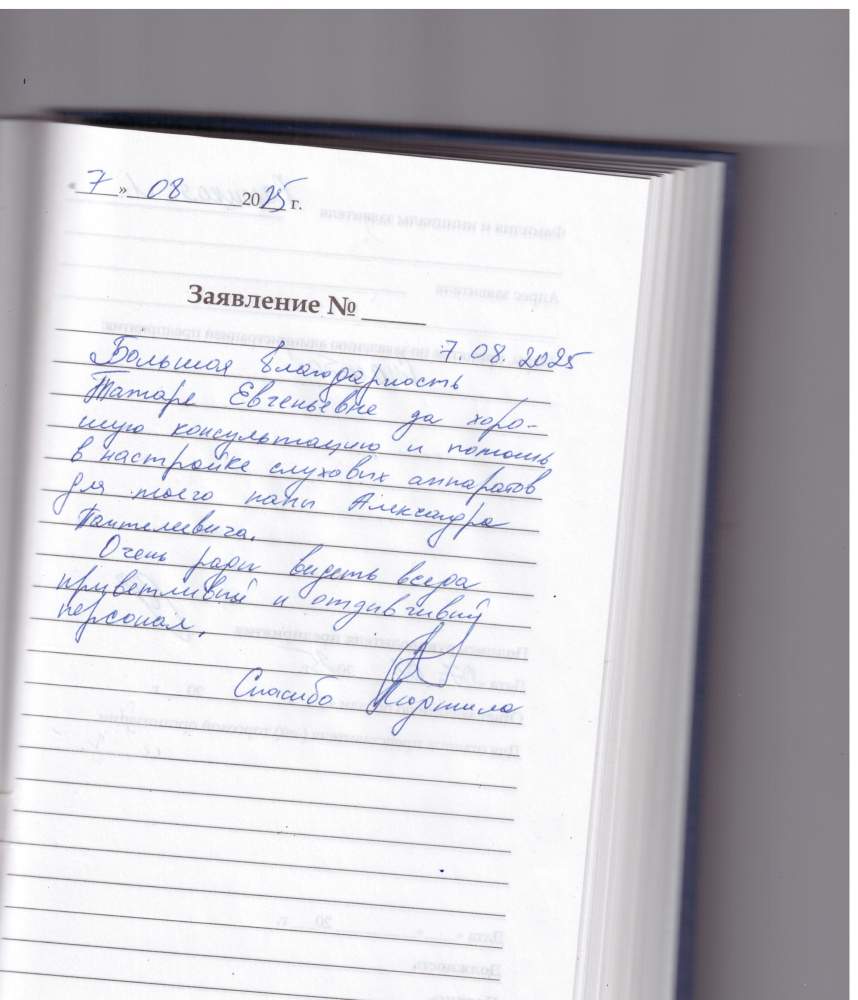 « 7 » 08 2025 г.
Заявление №
7.08.2025
Большая благодарность
Татаре Евгеньевне за хоро-
шую консультацию и помощь
в настройке слуховых аппаратов
для моего папы Александра
Пантелеевича.
Очень рады видеть всегда
приветливый и отзывчивый
персонал.
Спасибо Людмила